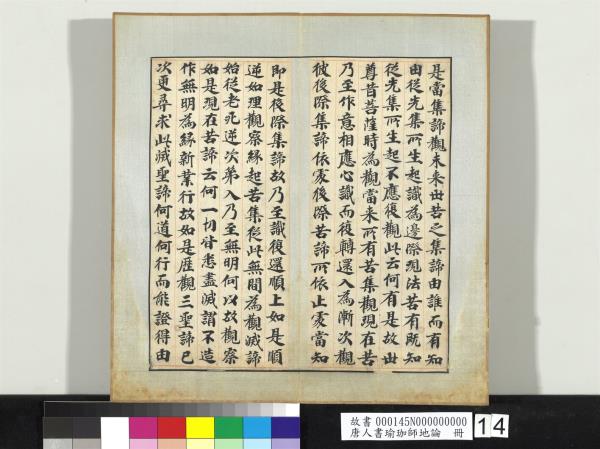 是當集諦觀未來世苦之集諦由誰而有知
由從先集所生起識為邊際現法苦有既知
從先集所生起不應復觀此云何有是故世
尊昔菩薩時為觀當來所有苦集觀現在苦
乃至作意相應心識而復轉還入為漸次觀
彼後際集諦依處後際苦諦所依止處當知
即是後際集諦故乃至識復還順上如是順
逆如理觀察緣起苦集從此無間為觀滅諦
始從老死逆次第入乃至無明何以故觀察
如是現在苦諦云何一切皆悉盡滅謂不造
作無明為緣新業行故如是歷觀三聖諦已
次更尋求此滅聖諦何道何行而能證得由
故書 000145N000000000
唐人書瑜珈師地論 冊
14